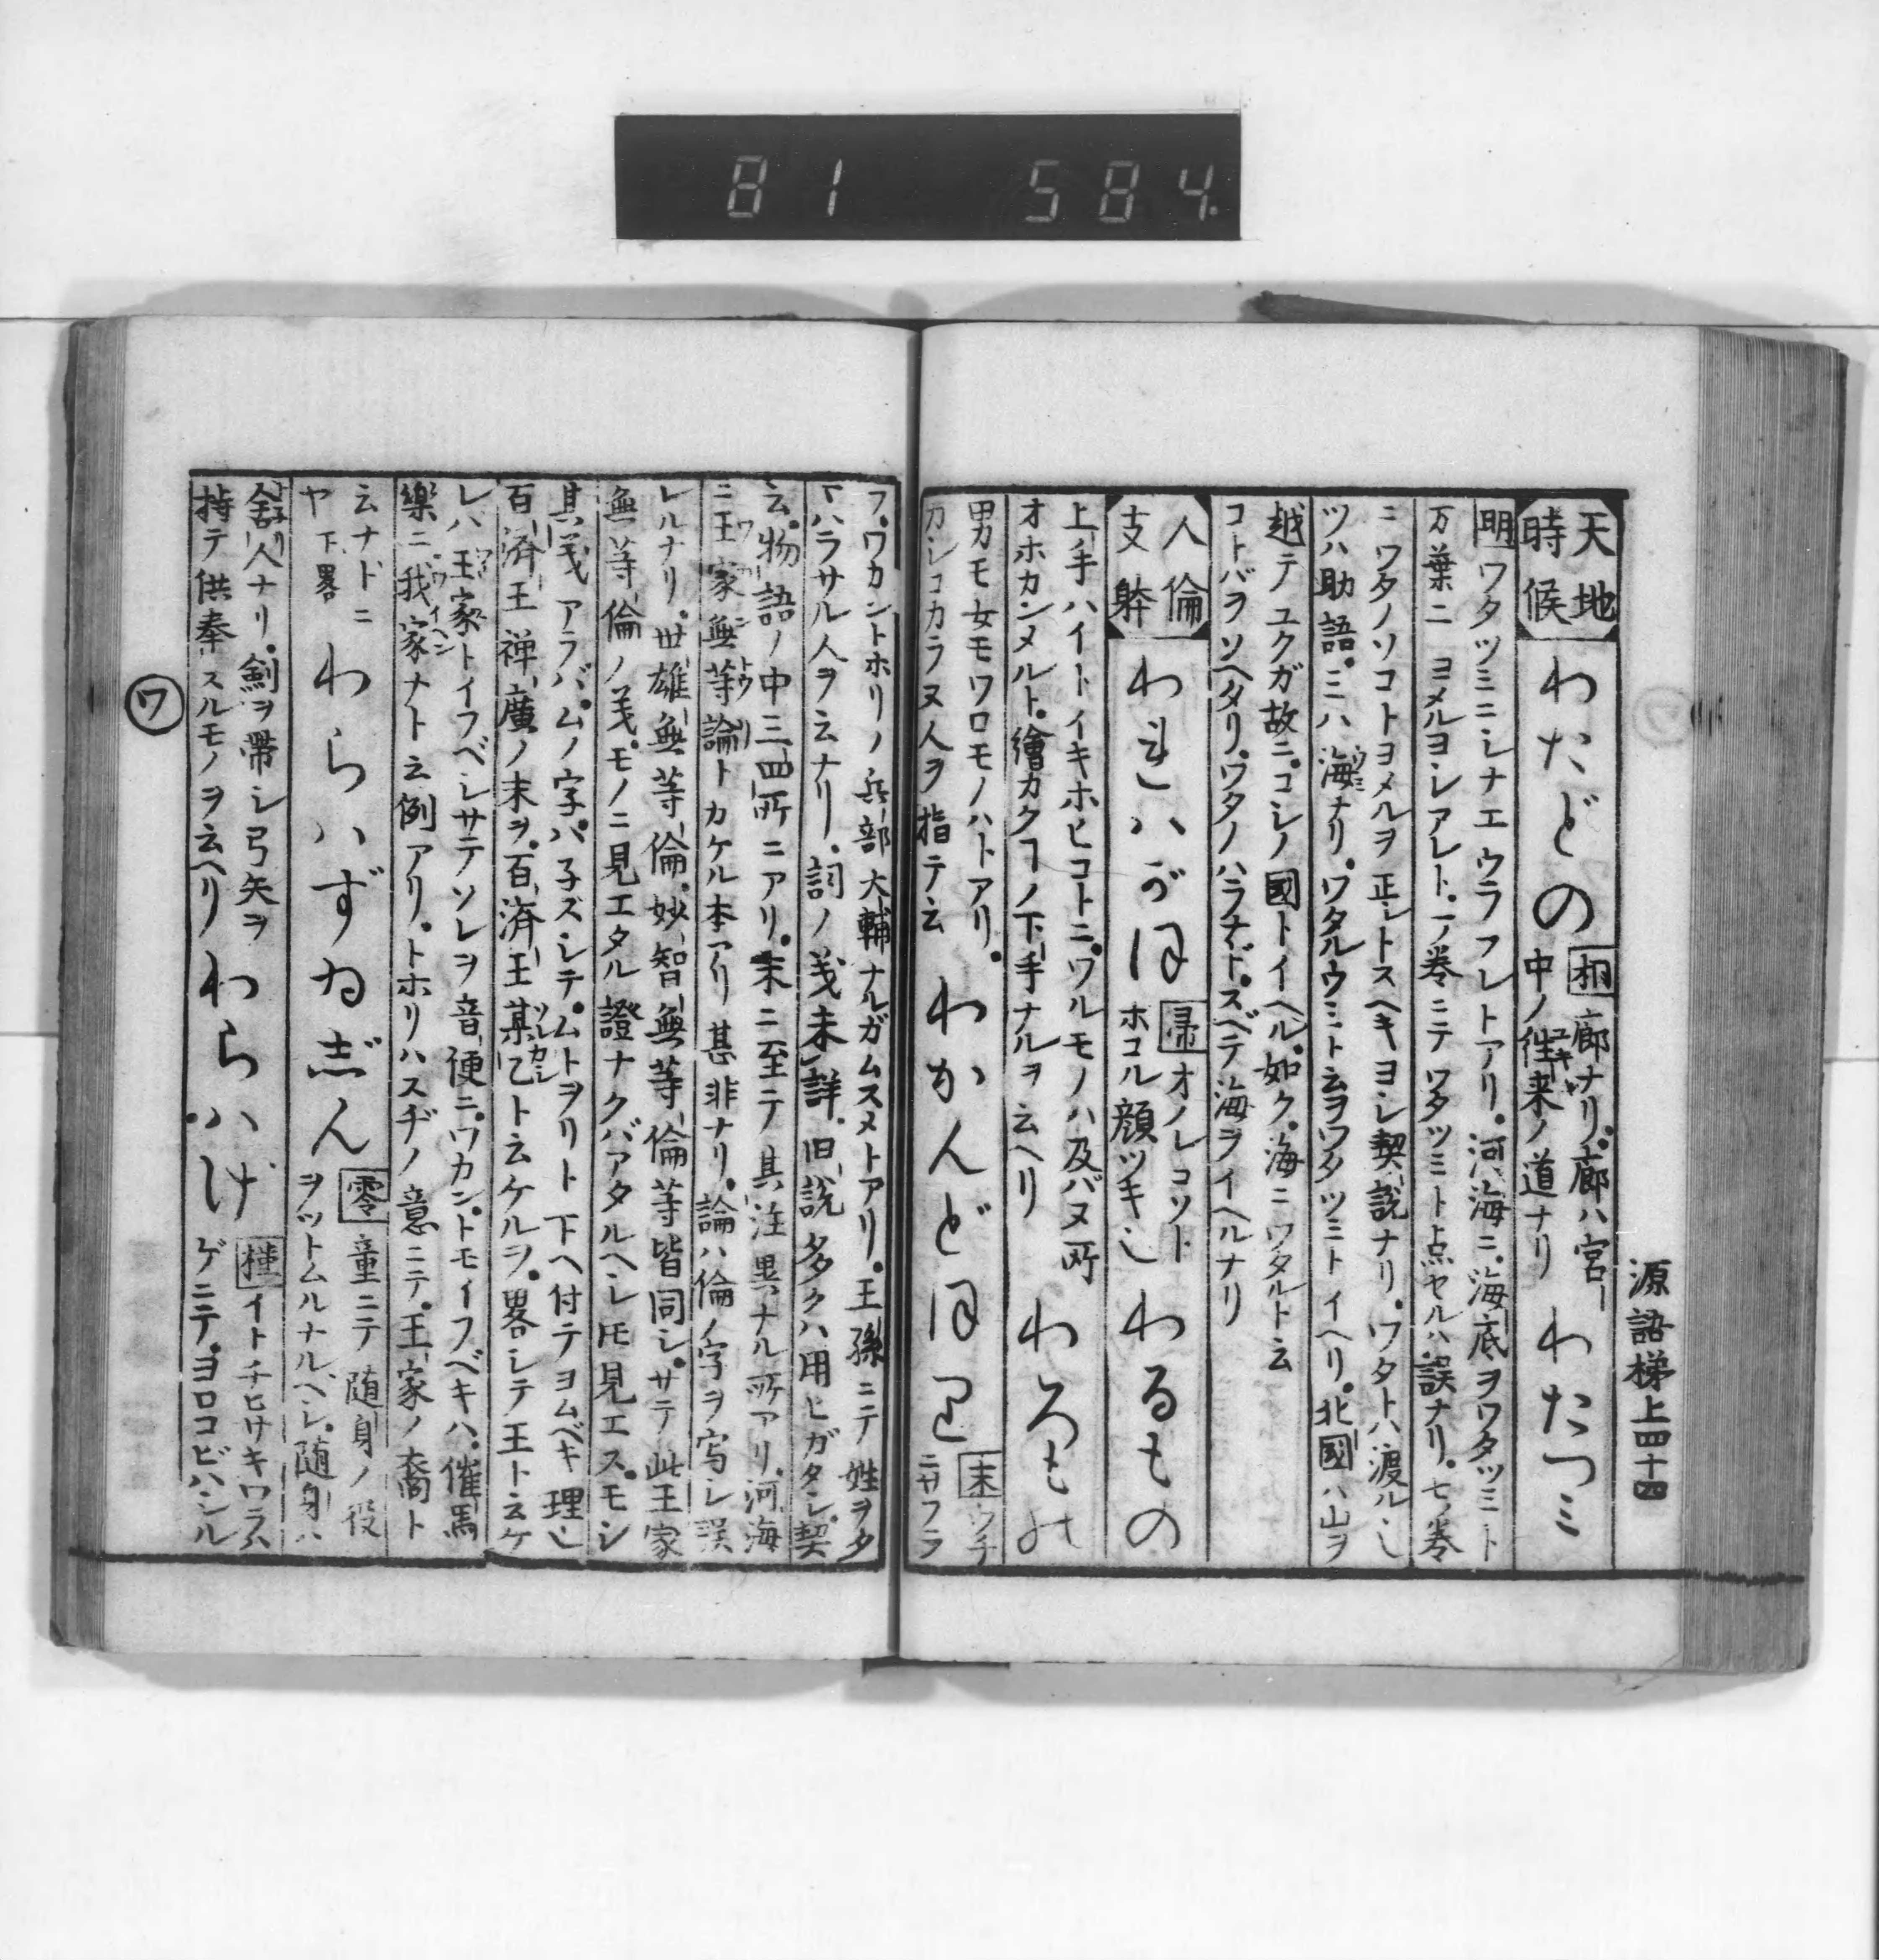 81 584.
源語梯上四十四
天地
時候
わたどの
桐 廊ナリ。廊ハ宮
中ノ往来ノ道ナリ
わたつミ
明 ワタツミニシナエウラフレトアリ。河海ニ。海底ヲワタツミト
万葉ニヨメルヨシアレト。一ノ巻ニテワタツミト点セルハ誤ナリ。七ノ巻
ニワタノソコトヨメルヲ正シトスヘキヨシ契説ナリ。ワタトハ渡ル也
ツハ助語。ミハ海ナリ。ワタルウミト云ヲワタツミトイヘリ。北國ハ山ヲ
越テユクガ故ニ。コシノ國トイヘル如ク。海ニワタルト云
コトバヲソヘタリ。ワタノハラナド。スベテ海ヲイヘルナリ
人倫
支躰
われハがほ
帚 オノレコソト
ホコル顔ツキ也
わるもの
上ノ手ハイトイキホヒコトニ。ワルモノハ及バヌ所
オホカンメルト。繪カクヿノ下手ナルヲ云ヘリ
わろもの
男モ女モワロモノハトアリ。
カシコカラヌ人ヲ指テ云
わかんどほり
末 ウチ
ニサフラ
フ。ワカントホリノ兵部大輔ナルガムスメトアリ。王孫ニテ姓ヲタ
マハラサル人ヲ云ナリ。詞ノ義未詳。旧説多クハ用ヒガタシ。契
云。物語ノ中三四所ニアリ。末ニ至テ其注異ナル所アリ。河海
ニ王家無等論トカケル本アリ甚非ナリ。論ハ倫ノ字ヲ写シ誤
レルナリ。世雄無等倫。妙智無等倫等皆同シ。サテ此王家
無等倫ノ義。モノニ見エタル證ナクバアタルヘシトモ見エス。モシ
其義アラバ。ムノ字バ子ズシテ。ムトヲリト下ヘ付テヨムベキ理也
百済王禅廣ノ末ヲ。百済王某乙ト云ケルヲ。畧シテ王ト云ケ
レハ王家トイフベシサテソレヲ音便ニ。ワカントモイフベキハ。催馬
樂ニ我家ナト云例アリ。トホリハスヂノ意ニテ。王家ノ裔ト
云ナドニ
ヤ下畧
わらハずゐじん
零 童ニテ随身ノ役
ヲツトムルナルヘシ。随身ハ
舎人ナリ。劍ヲ帶シ弓矢ヲ
持テ供奉スルモノヲ云ヘリ
わらハげ
槿 イトチヒサキワラハ
ゲニテ。ヨロコビハシル
ワ